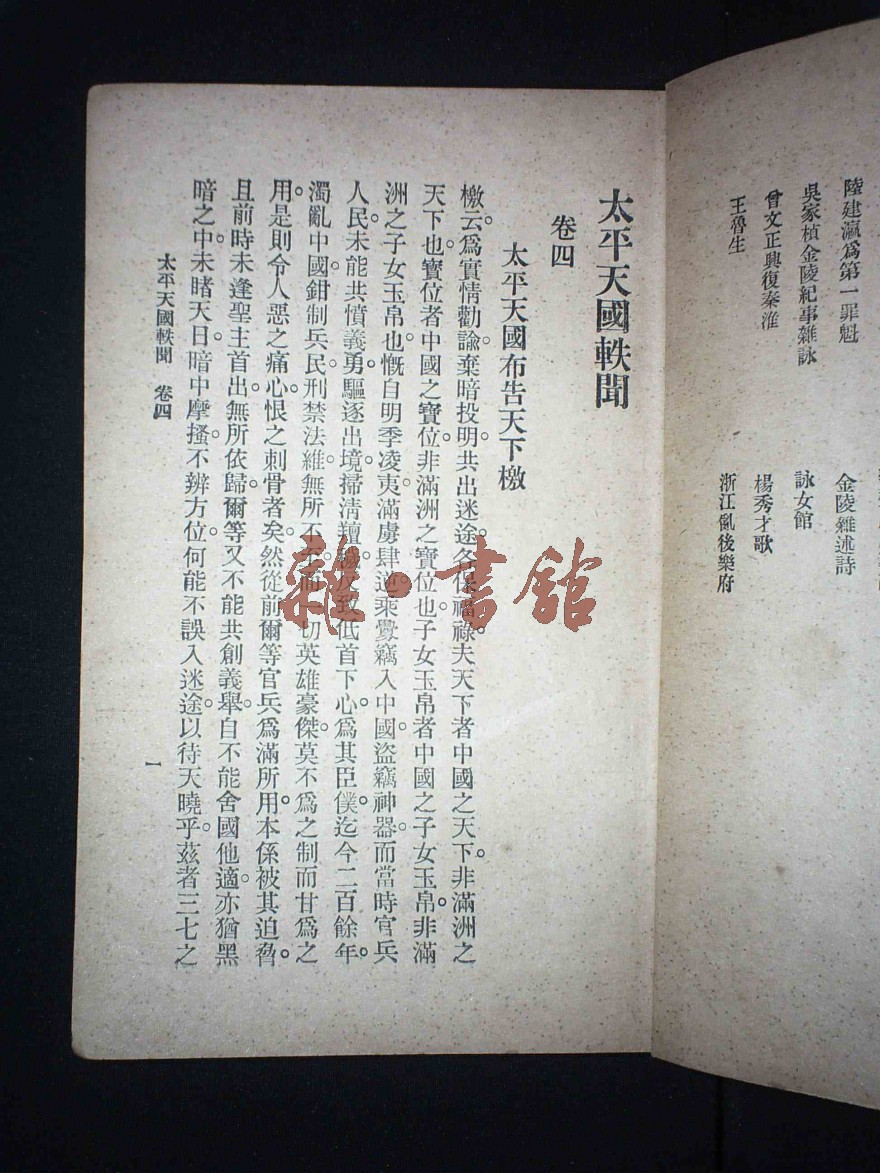 陸建瀛爲第一罪魁　金陵雜述詩
吳家楨金陵紀事雜詠　詠女館
曾文正興復秦淮　楊秀才歌
王魯生　浙江亂後樂府
太平天國軼聞
卷四
太平天國布告天下檄
檄云。爲實情勸諭。棄暗投明。共出迷途。各保福祿。夫天下者中國之天下。非滿洲之
天下也。寶位者中國之寶位。非滿洲之寶位也。子女玉帛者中國之子女玉帛。非滿
洲之子女玉帛也。慨自明季凌夷。滿虜肆逆。乘釁竊入中國。盜竊神器。而當時官兵
人民。未能共憤義勇。驅逐出境。掃清羶穢。反致低首下心。爲其臣僕。迄今二百餘年。
濁亂中國。鉗制兵民。刑禁法維。無所不至。而一切英雄豪傑。莫不爲之制而甘爲之
用。是則令人惡之痛心。恨之刺骨者矣。然從前爾等官兵爲滿所用。本係被其迫脅。
且前時未逢聖主首出。無所依歸。爾等又不能共創義舉。自不能舍國他適。亦猶黑
暗之中。未睹天日。暗中摩搔。不辨方位。何能不誤入迷途。以待天曉乎。茲者三七之
太平天國軼聞　卷四　一
雜·書館